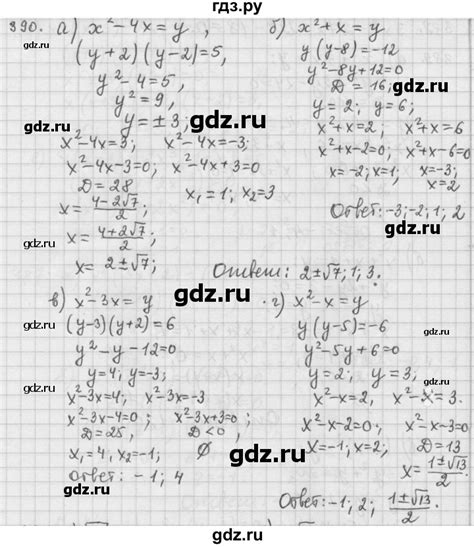 гдз.ру
390. а) x² - 4x = y ,
(y+2)(y-2)=5,
y² - 4 = 5,
y² = 9,
y = ± 3;
x² - 4x = 3; x² - 4x = -3;
x² - 4x - 3 = 0; x² - 4x + 3 = 0
D = 28
x₁ = 1; x₂ = 3
x = (4 - 2√7)/2;
x = (4 + 2√7)/2;
x = 2 ± √7;
Ответ: 2 ± √7; 1; 3.
б) x² + x = y
y(y-8) = -12
y² - 8y + 12 = 0
D = 16;
y = 2; y = 6;
x² + x = 2; x² + x = 6
x² + x - 2 = 0; x² + x - 6 = 0
x = -2; x = 1; x = -3;
x = 2
Ответ: -3; -2; 1; 2
в) x² - 3x = y
(y-3)(y+2) = 6
y² - y - 12 = 0
y = 4; y = -3;
x² - 3x = 4; x² - 3x = -3
x² - 3x - 4 = 0; x² - 3x + 3 = 0;
D = 25, D < 0,
x₁ = 4, x₂ = -1; ∅
Ответ: -1; 4
г) x² - x = y
y(y-5) = -6
y² - 5y + 6 = 0
y = 2; y = 3;
x² - x = 2, x² - x = 3;
x² - x - 2 = 0; x² - x - 3 = 0
x = -1; x = 2; D = 13
x = (1 ± √13)/2.
Ответ: -1; 2; (1 ± √13)/2
gdz.ru
gdz.ru
gdz.ru
gdz.ru
gdz.ru
gdz.ru
gdz.ru
gdz.ru
gdz.ru
gdz.ru
gdz.ru
gdz.ru
gdz.ru